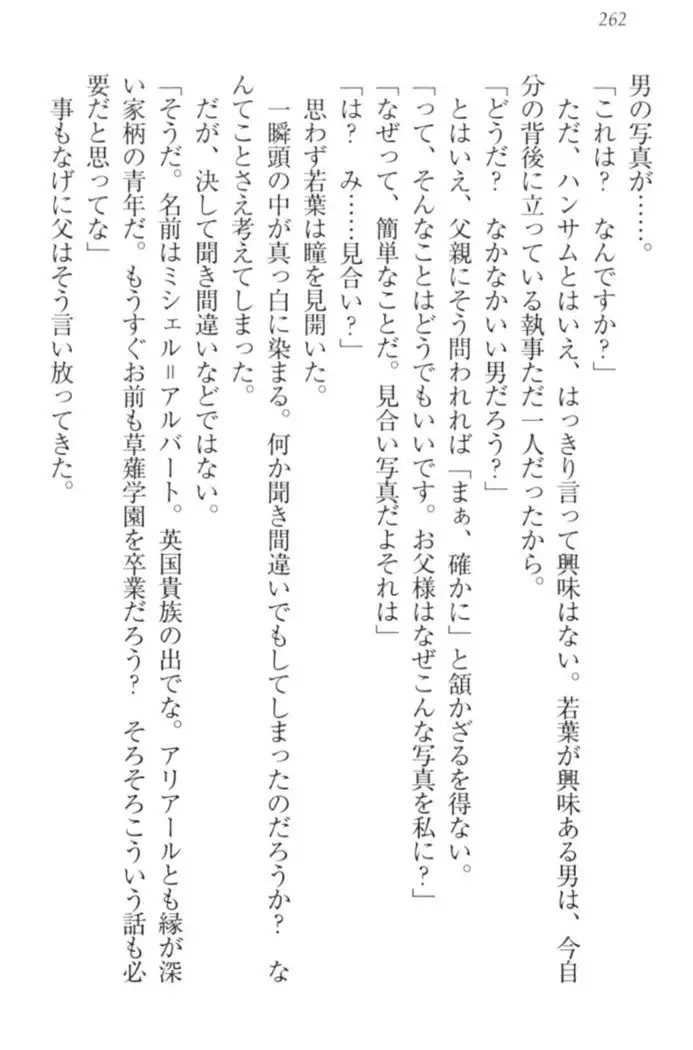 262
男の写真が……。
「これは？　なんですか？」
ただ、ハンサムとはいえ、はっきり言って興味はない。若葉が興味ある男は、今自
分の背後に立っている執事ただ一人だったから。
「どうだ？　なかなかいい男だろう？」
とはいえ、父親にそう問われれば「まぁ、確かに」と頷かざるを得ない。
「って、そんなことはどうでもいいです。お父様はなぜこんな写真を私に？」
「なぜって、簡単なことだ。見合い写真だよそれは」
「は？　み……見合い？」
思わず若葉は瞳を見開いた。
一瞬頭の中が真っ白に染まる。何か聞き間違いでもしてしまったのだろうか？　な
んてことさえ考えてしまった。
だが、決して聞き間違いなどではない。
「そうだ。名前はミシェル＝アルバート。英国貴族の出でな。アリアールとも縁が深
い家柄の青年だ。もうすぐお前も草薙学園を卒業だろう？　そろそろこういう話も必
要だと思ってな」
事もなげに父はそう言い放ってきた。